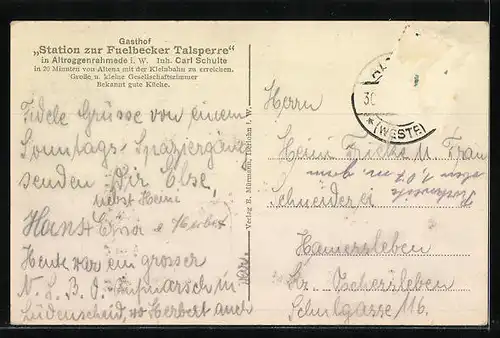 Gasthof
„Station zur Fuelbecker Talsperre“
in Altroggenrahmede i. W. Inh. Carl Schulte
in 20 Minuten von Altena mit der Kleinbahn zu erreichen.
Große u. kleine Gesellschaftszimmer
Bekannt gute Küche.
Fidele Grüsse von einem
Sonntags-Spaziergang
senden Dir Else,
nebst Heini
Hans Erna u Herbert
Heute war ein grosser
N. S. B. O. Aufmarsch in
Lüdenscheid, wo Herbert auch
Verlag B. Mürmann, i. W.
30
(WESTF)
Herrn
Heini u Frau
Schneiderei
Hamersleben
Kr. Oschersleben
Schulgasse 116.